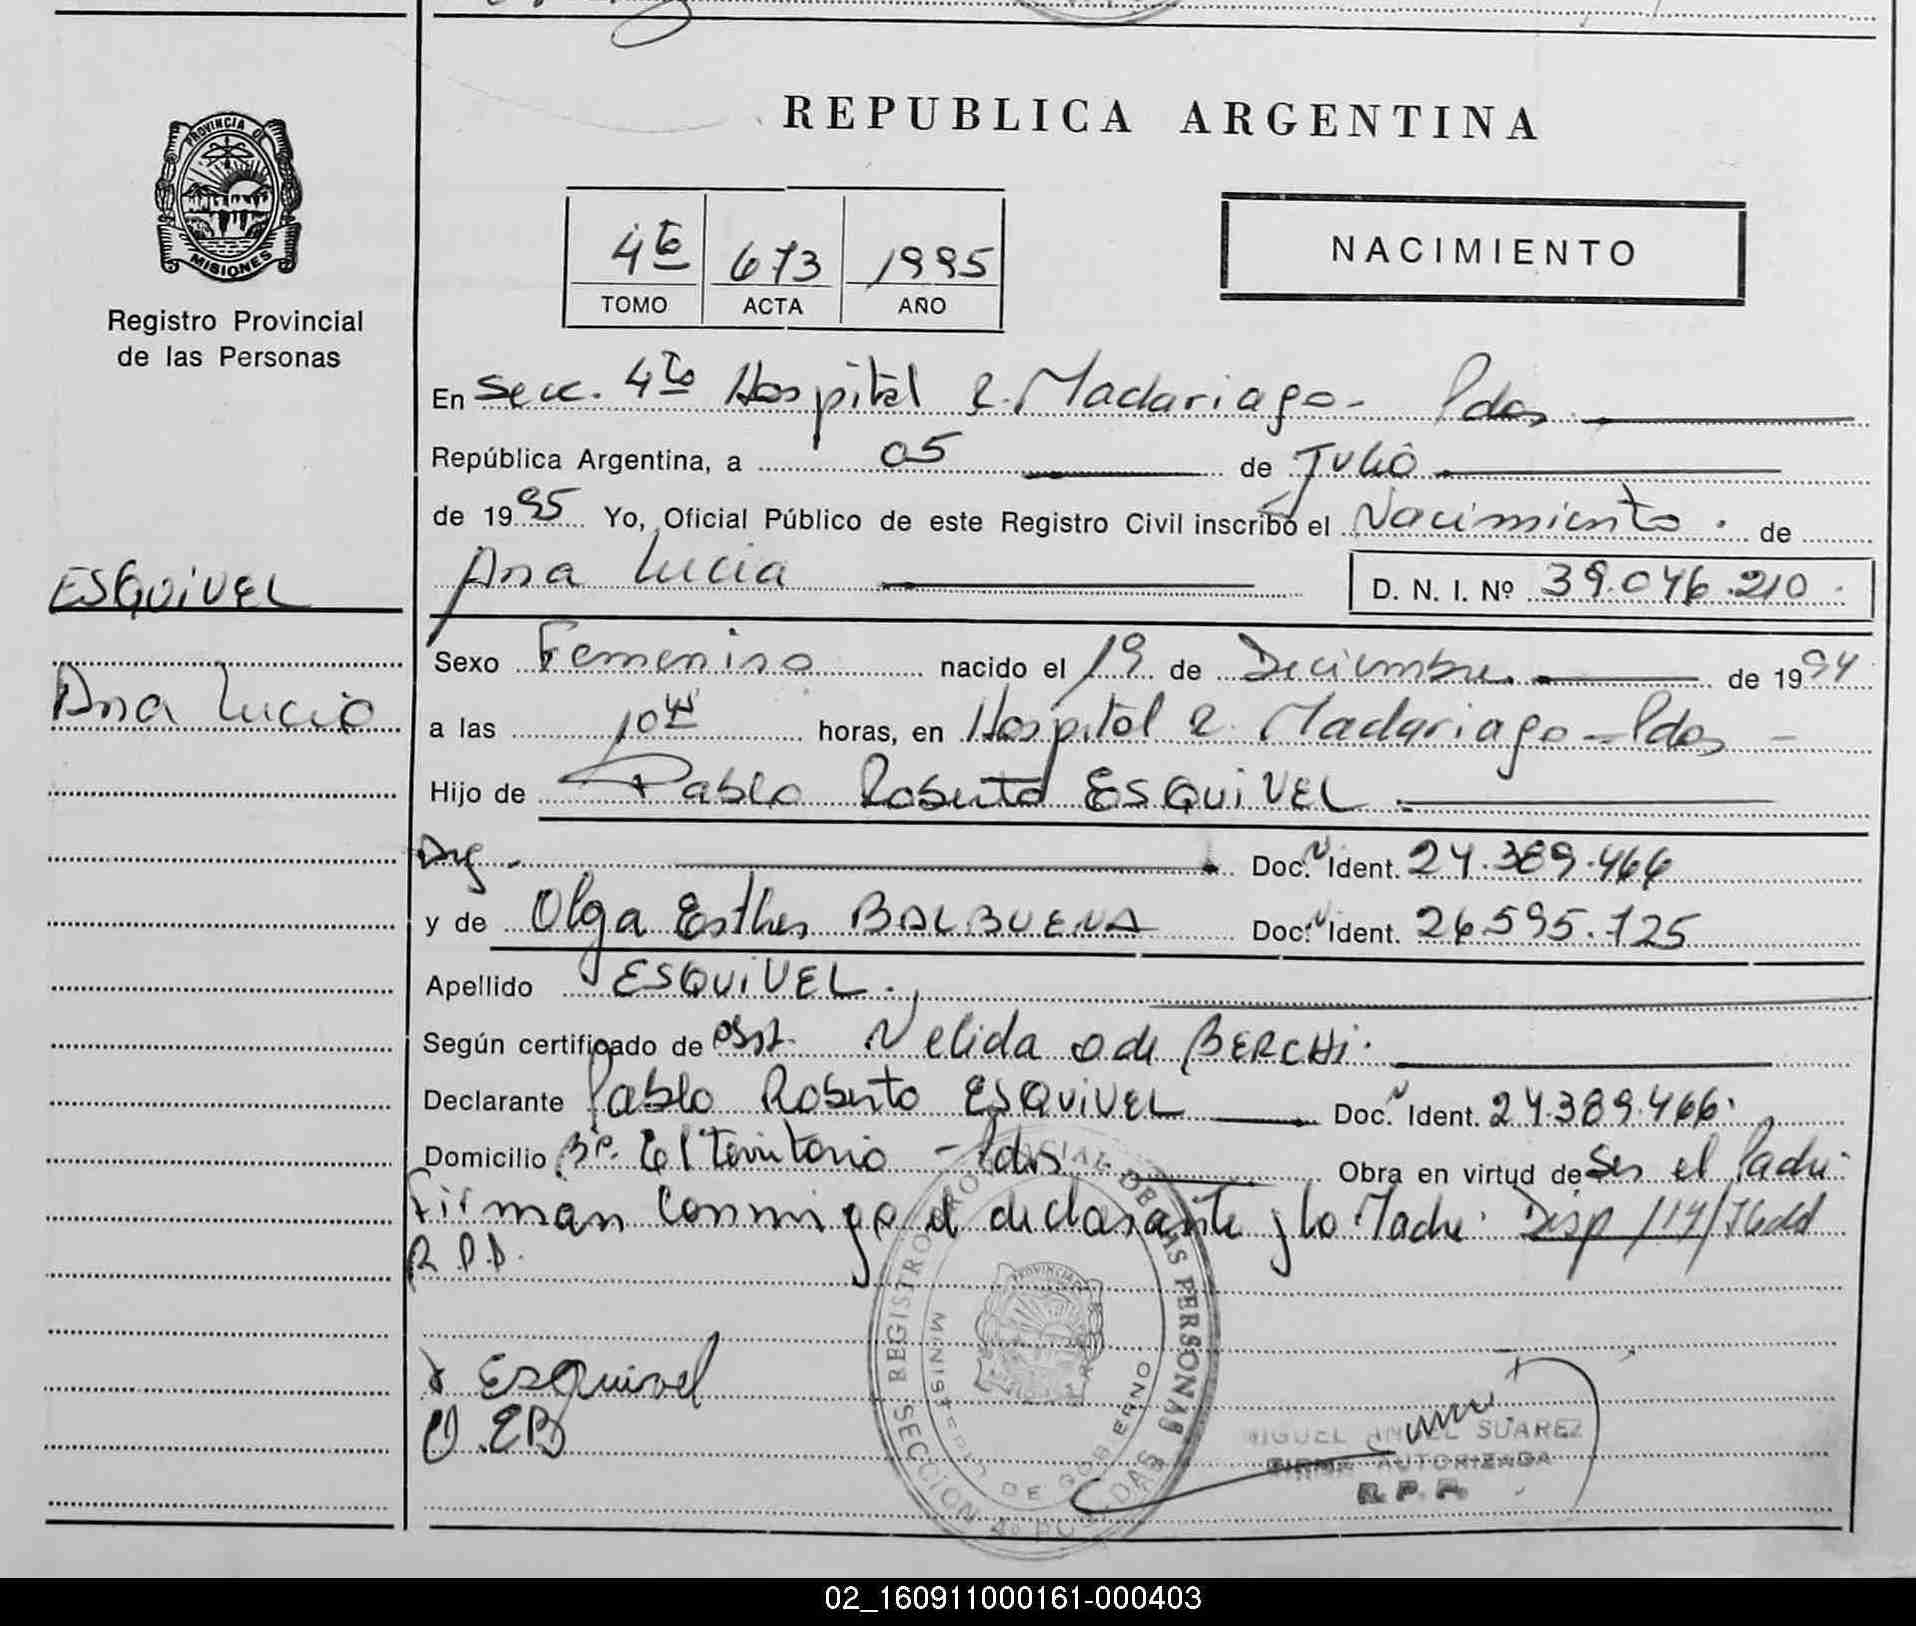 REPUBLICA ARGENTINA
PROVINCIA DE
MISIONES
Registro Provincial
de las Personas
4to 673 1995
TOMO ACTA AÑO
NACIMIENTO
En Secc. 4to Hospital R. Madariaga - Pdas
República Argentina, a 05 de Julio
de 1995 Yo, Oficial Público de este Registro Civil inscribo el Nacimiento. de
Ana Lucia D. N. I. Nº 39.046.210.
ESQUIVEL
Ana Lucia
Sexo Femenino nacido el 19 de Diciembre de 1994
a las 10 horas, en Hospital R. Madariaga - Pdas -
Hijo de Pablo Roberto ESQUIVEL
Arg. Doc. Ident. 24.389.466
y de Olga Esther BALBUENA Doc. Ident. 26.595.125
Apellido ESQUIVEL.
Según certificado de Obst. Nelida O de BERCHI.
Declarante Pablo Roberto ESQUIVEL Doc. Ident. 24.389.466.
Domicilio Bº. El Territorio - Pdas Obra en virtud de Ser el Padre.
Firman conmigo el declarante y la Madre. Disp 114/
Esquivel
O.EB
REGISTRO PROVINCIAL DE LAS PERSONAS
MINISTERIO DE GOBIERNO
SECCION 4º POSADAS
MIGUEL ANGEL SUAREZ
FIRMA AUTORIZADA
R. P. P.
02_160911000161-000403